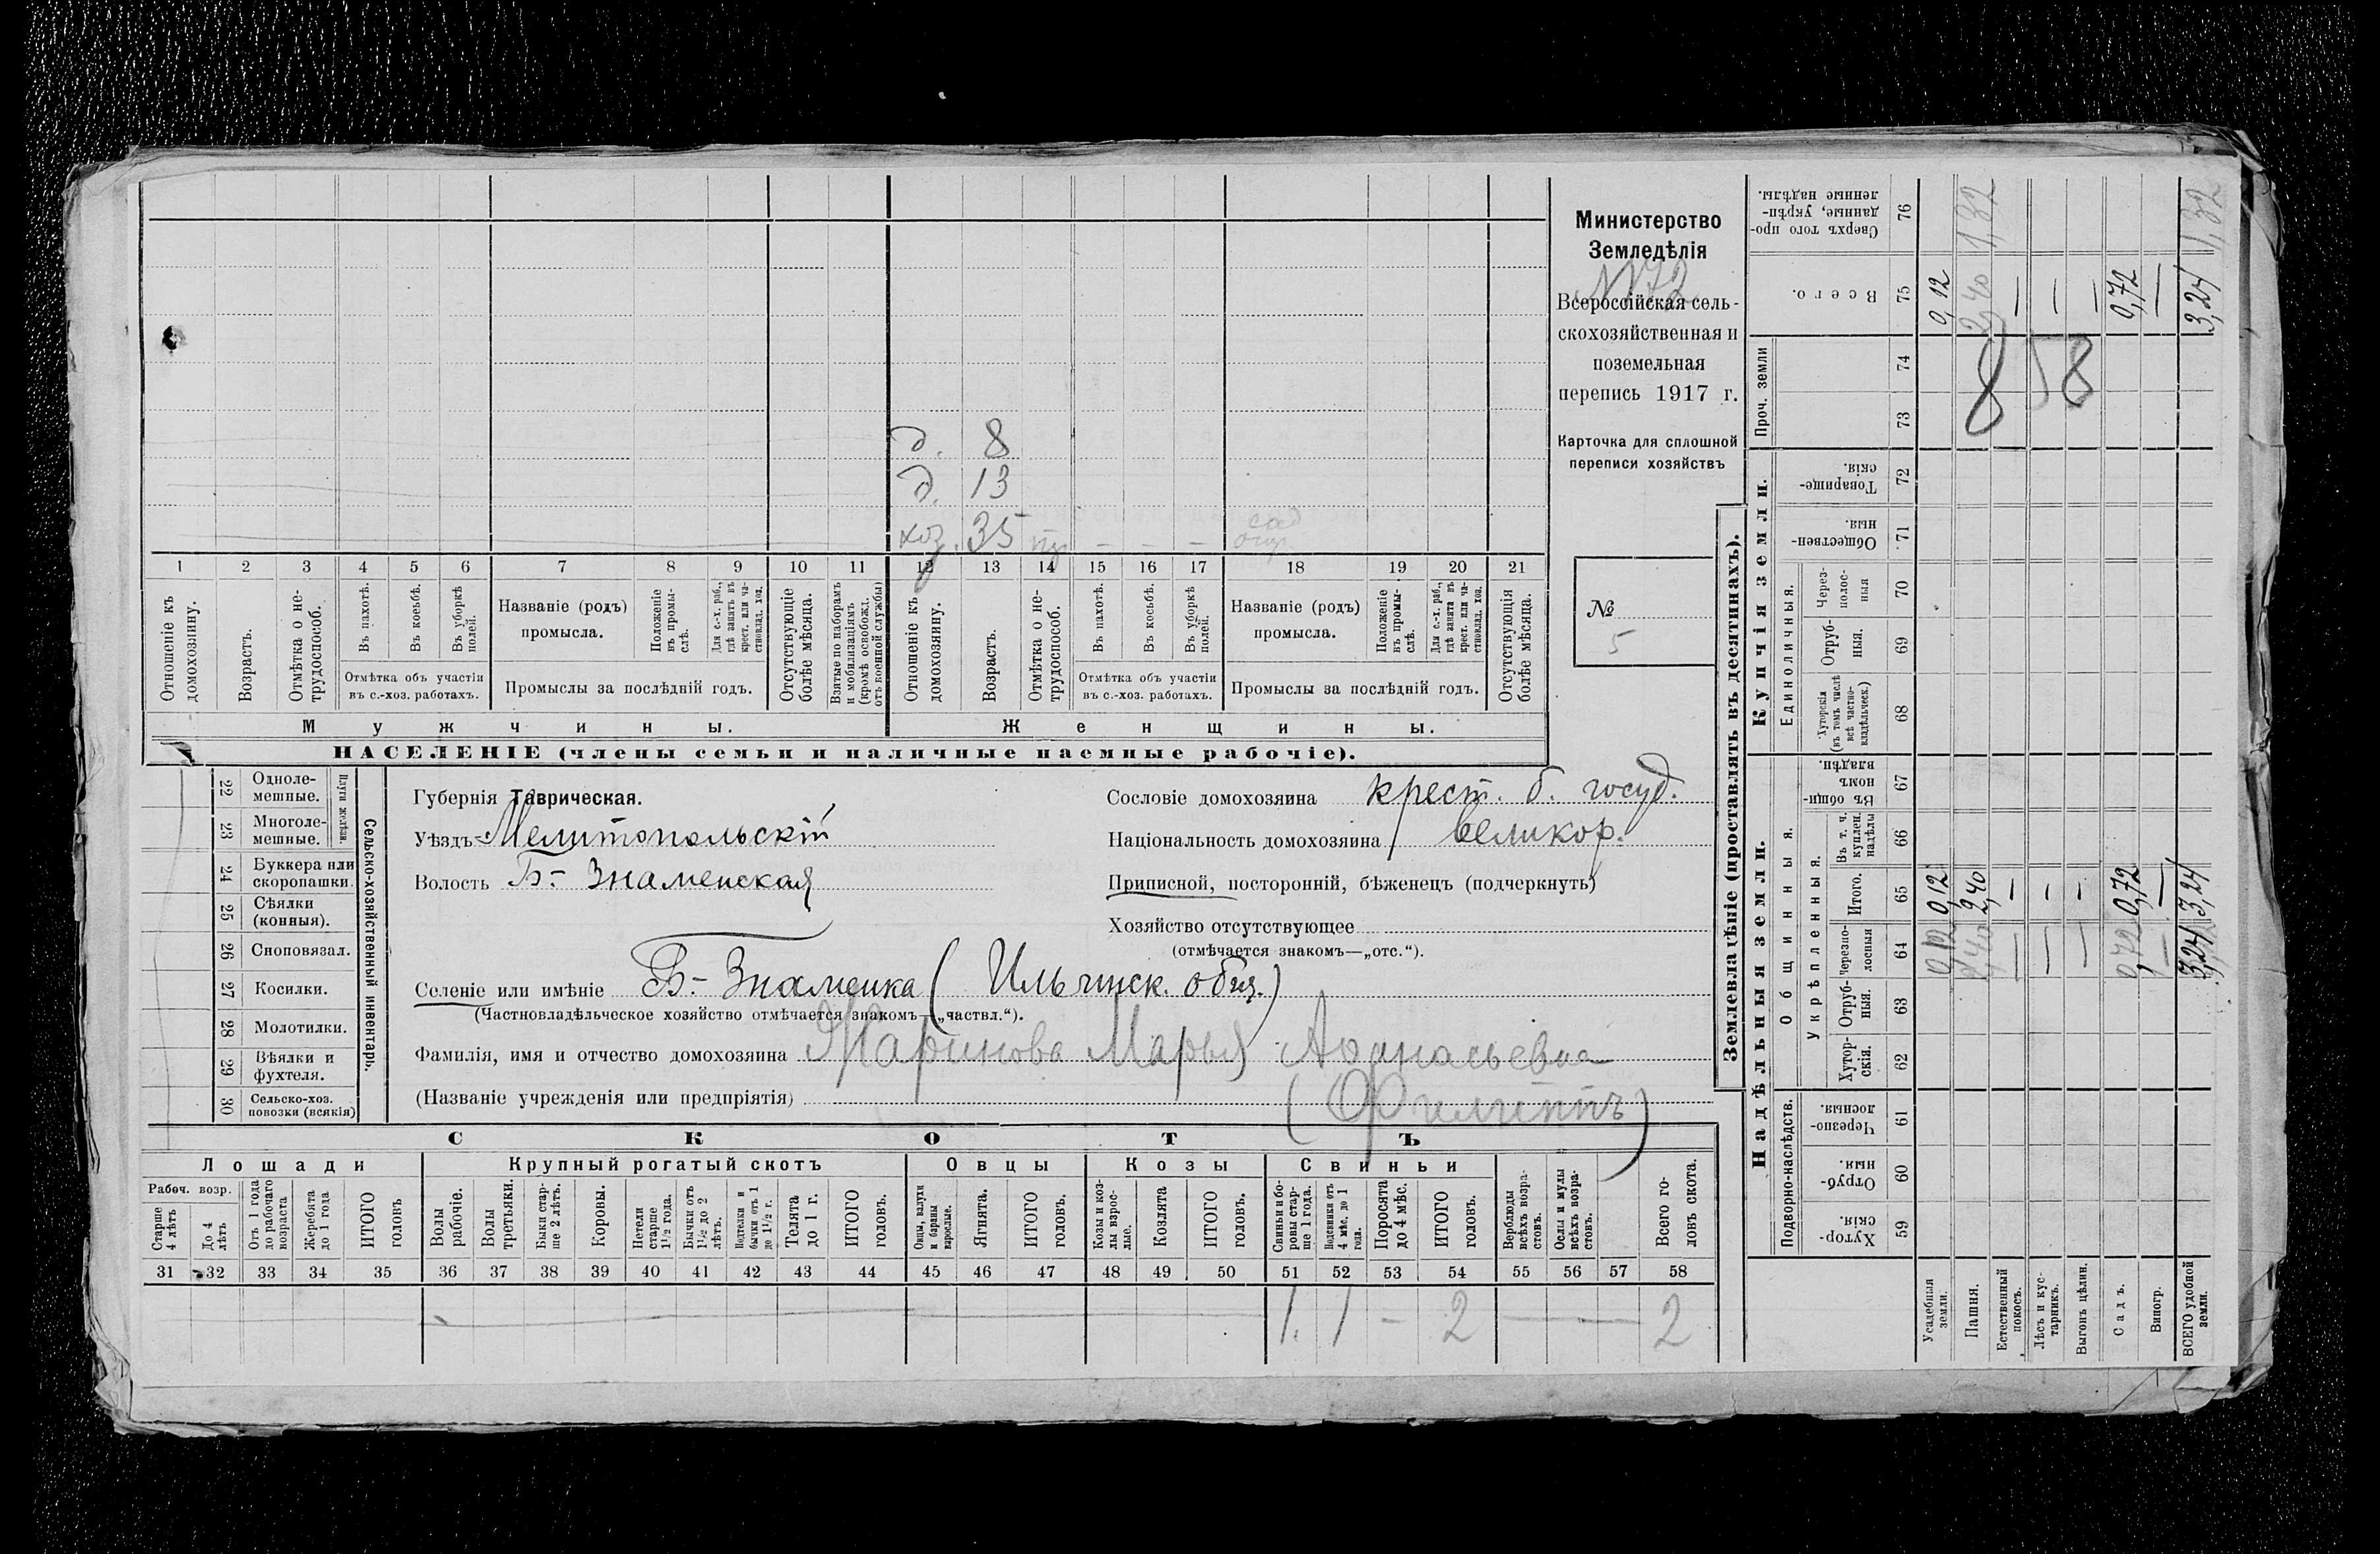 Министерство
Земледѣлія
№ 72
Всероссійская сель-
скохозяйственная и
поземельная
перепись 1917 г.
Карточка для сплошной
переписи хозяйствъ
№
5
д. 8
д. 13
хоз. 35 – – – сад
огор.
1 2 3 4 5 6 7 8 9 10 11 12 13 14 15 16 17 18 19 20 21
Отношеніе къ домохозяину.
Возрастъ.
Отмѣтка о не-трудоспособ.
Въ пахотѣ.
Въ косьбѣ.
Въ уборкѣ полей.
Отмѣтка объ участіи
въ с.-хоз. работахъ.
Названіе (родъ)
промысла.
Положеніе въ промы-слѣ.
Для с.-х. раб., гдѣ занятъ въ крест. или ча-стновлад. хоз.
Промыслы за послѣдній годъ.
Отсутствующіе болѣе мѣсяца.
Взятые по наборамъ и мобилизаціямъ (кромѣ освобожд. отъ военной службы)
Отношеніе къ домохозяину.
Возрастъ.
Отмѣтка о не-трудоспособ.
Въ пахотѣ.
Въ косьбѣ.
Въ уборкѣ полей.
Отмѣтка объ участіи
въ с.-хоз. работахъ.
Названіе (родъ)
промысла.
Положеніе въ промы-слѣ.
Для с.-х. раб., гдѣ занята въ крест. или ча-стновлад. хоз.
Промыслы за послѣдній годъ.
Отсутствующія болѣе мѣсяца.
Мужчины. Женщины.
НАСЕЛЕНІЕ (члены семьи и наличные наемные рабочіе).
Сельско-хозяйственный инвентарь.
Плуги желѣзн.
22 Одноле-мешные.
23 Многоле-мешные.
24 Буккера или скоропашки.
25 Сѣялки (конныя).
26 Сноповязал.
27 Косилки.
28 Молотилки.
29 Вѣялки и фухтеля.
30 Сельско-хоз. повозки (всякія)
Губернія Таврическая.
Уѣздъ Мелитопольскій
Волость Б.- Знаменская
Сословіе домохозяина крест. б. госуд.
Національность домохозяина великор.
Приписной, посторонній, бѣженецъ (подчеркнуть)
Хозяйство отсутствующее
(отмѣчается знакомъ—„отс.“).
Селеніе или имѣніе Б.- Знаменка ( Ильинск. общ.)
(Частновладѣльческое хозяйство отмѣчается знакомъ—„частвл.“).
Фамилія, имя и отчество домохозяина Жаринова Марья Афанасьевна
(Названіе учрежденія или предпріятія) (Филиппъ)
СКОТЪ
Лошади Крупный рогатый скотъ Овцы Козы Свиньи
Рабоч. возр.
Старше 4 лѣтъ
До 4 лѣтъ
Отъ 1 года до рабочаго возраста
Жеребята до 1 года
ИТОГО головъ
Волы рабочіе.
Волы третьяки.
Быки стар-ше 2 лѣтъ.
Коровы.
Нетели старше 1½ года.
Бычки отъ 1½ до 2 лѣтъ.
Нетелки и бычки отъ 1 до 1½ г.
Телята до 1 г.
ИТОГО головъ.
Овцы, валухи и бараны взрослые.
Ягнята.
ИТОГО головъ.
Козы и коз-лы взрос-лые.
Козлята
ИТОГО головъ.
Свиньи и бо-ровы стар-ше 1 года.
Подсвинки отъ 4 мѣс. до 1 года.
Поросята до 4 мѣс.
ИТОГО головъ.
Верблюды всѣхъ возра-стовъ.
Ослы и мулы всѣхъ возра-стовъ.
Всего го-ловъ скота.
31 32 33 34 35 36 37 38 39 40 41 42 43 44 45 46 47 48 49 50 51 52 53 54 55 56 57 58
1. 1 – 2 — 2
Землевладѣніе (проставлять въ десятинахъ).
Надѣльныя земли.
Подворно-наслѣдств.
Хутор-скія. 59
Отруб-ныя. 60
Черезпо-лосныя. 61
Общинныя.
Укрѣпленныя.
Хутор-скія. 62
Отруб-ныя. 63
Черезпо-лосныя 64
Итого. 65
Въ т. ч. куплен. надѣлы 66
Въ общи-номъ владѣн. 67
Купчія земли.
Единоличныя.
Хуторскія (въ томъ числѣ всѣ частно-владѣльческ.) 68
Отруб-ныя. 69
Через-полос-ныя 70
Обществен-ныя. 71
Товарище-скія. 72
Проч. земли
73 74
Всего. 75
Сверхъ того про-данные, укрѣп-ленные надѣлы. 76
Усадебныя земли. 0,12 0,12 0,12
Пашня. 2,40 2,40 2,40 1,32
Естественный покосъ. – – –
Лѣсъ и кус-тарникъ. – – –
Выгонъ цѣлин. – – –
Садъ. 0,72 0,72 0,72
Виногр. – – –
ВСЕГО удобной земли. 3,24 3,24 3,24 1,32
8 58